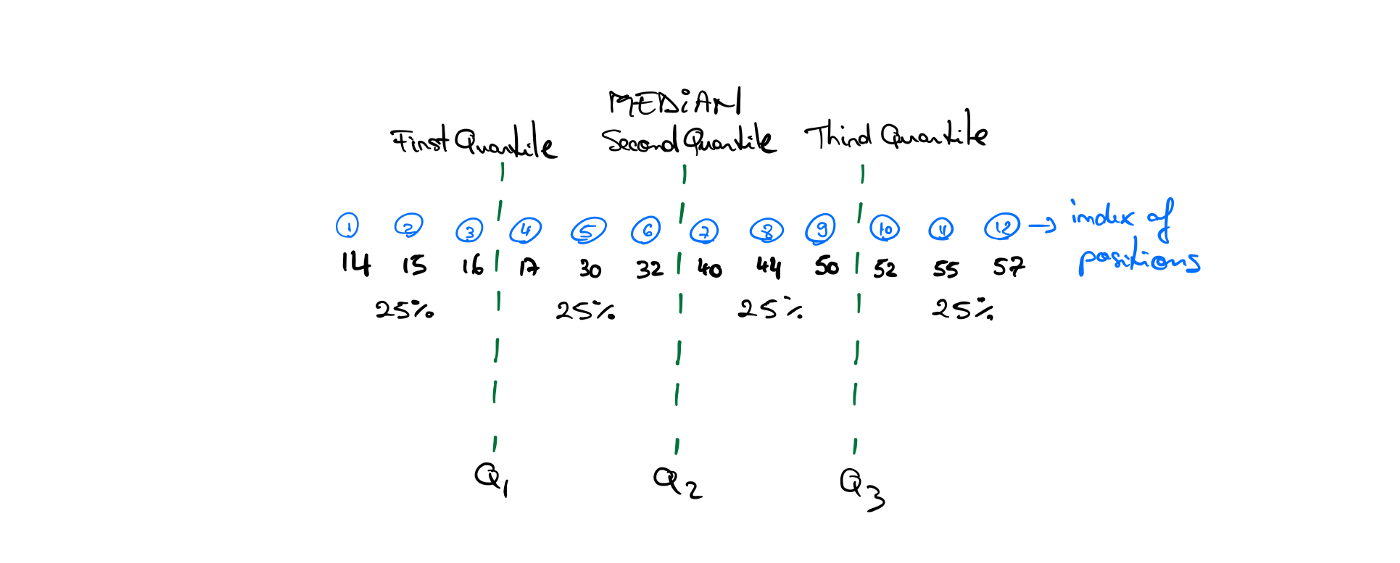 MEDIAN
First Quantile Second Quantile Third Quantile
1 2 3 4 5 6 7 8 9 10 11 12 → index of
positions
14 15 16 17 30 32 40 44 50 52 55 57
25% 25% 25% 25%
Q1 Q2 Q3